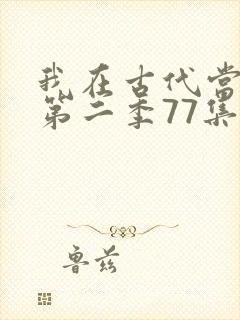 我在古代当
第二季77集
鲁兹